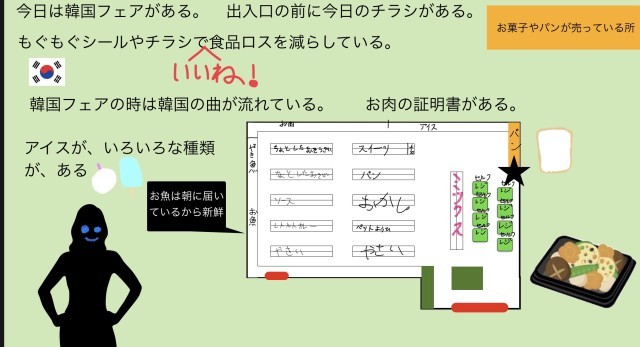 今日は韓国フェアがある。 出入口の前に今日のチラシがある。
お菓子やパンが売っている所
もぐもぐシールやチラシで食品ロスを減らしている。
いいね!
韓国フェアの時は韓国の曲が流れている。 お肉の証明書がある。
アイスが、いろいろな種類
が、ある
お魚は朝に届い
ているから新鮮
お肉
アイス
パン
お魚
スイーツ
パン
ソース
おかし
ペットようひん
やさい
やさい
ミックス
セルフ
レジ
セルフ
レジ
セルフ
レジ
セルフ
レジ
セルフ
レジ
セルフ
レジ
セルフ
レジ
セルフ
レジ